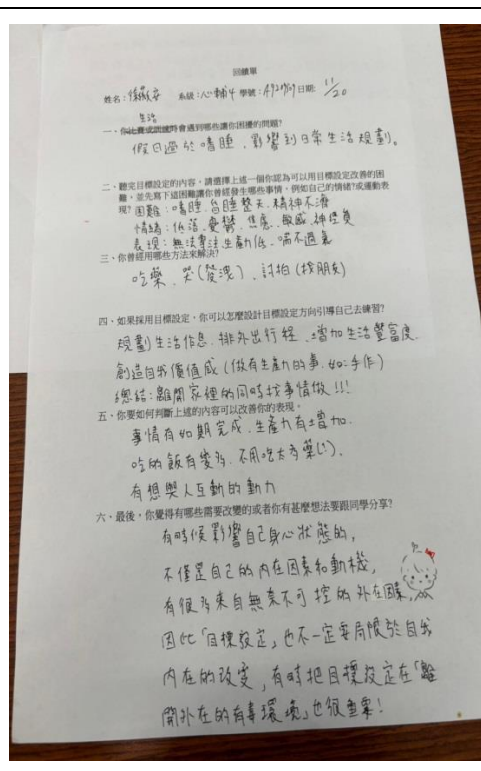 回饋單
姓名: 系級:心輔4 學號: 日期: 11/20
生活
一、你比賽或訓練時會遇到哪些讓你困擾的問題?
假日過於嗜睡、影響到日常生活規劃。
二、聽完目標設定的內容,請選擇上述一個你認為可以用目標設定改善的困
難,並先寫下這困難讓你曾經發生哪些事情,例如自己的情緒?或運動表
現? 困難:嗜睡、自睡整天、精神不濟
情緒:低落、憂鬱、焦慮、敏感、神經質
表現:無法專注生產力低、喘不過氣
三、你曾經用哪些方法來解決?
吃藥、哭(發洩)、討拍(找朋友)
四、如果採用目標設定,你可以怎麼設計目標設定方向引導自己去練習?
規劃生活作息、排外出行程、增加生活豐富度
創造自我價值感(做有生產力的事、如:手作)
總結:離開家裡的同時找事情做!!!
五、你要如何判斷上述的內容可以改善你的表現。
事情有如期完成、生產力有增加、
吃的飯有變多、不用吃太多藥
有想與人互動的動力
六、最後,你覺得有哪些需要改變的或者你有甚麼想法要跟同學分享?
有時候影響自己身心狀態的,
不僅是自己的內在因素和動機,
有很多來自無奈不可控的外在因素,
因此「目標設定」也不一定要局限於自我
內在的改變,有時把目標設定在「離
開外在的有毒環境」也很重要!